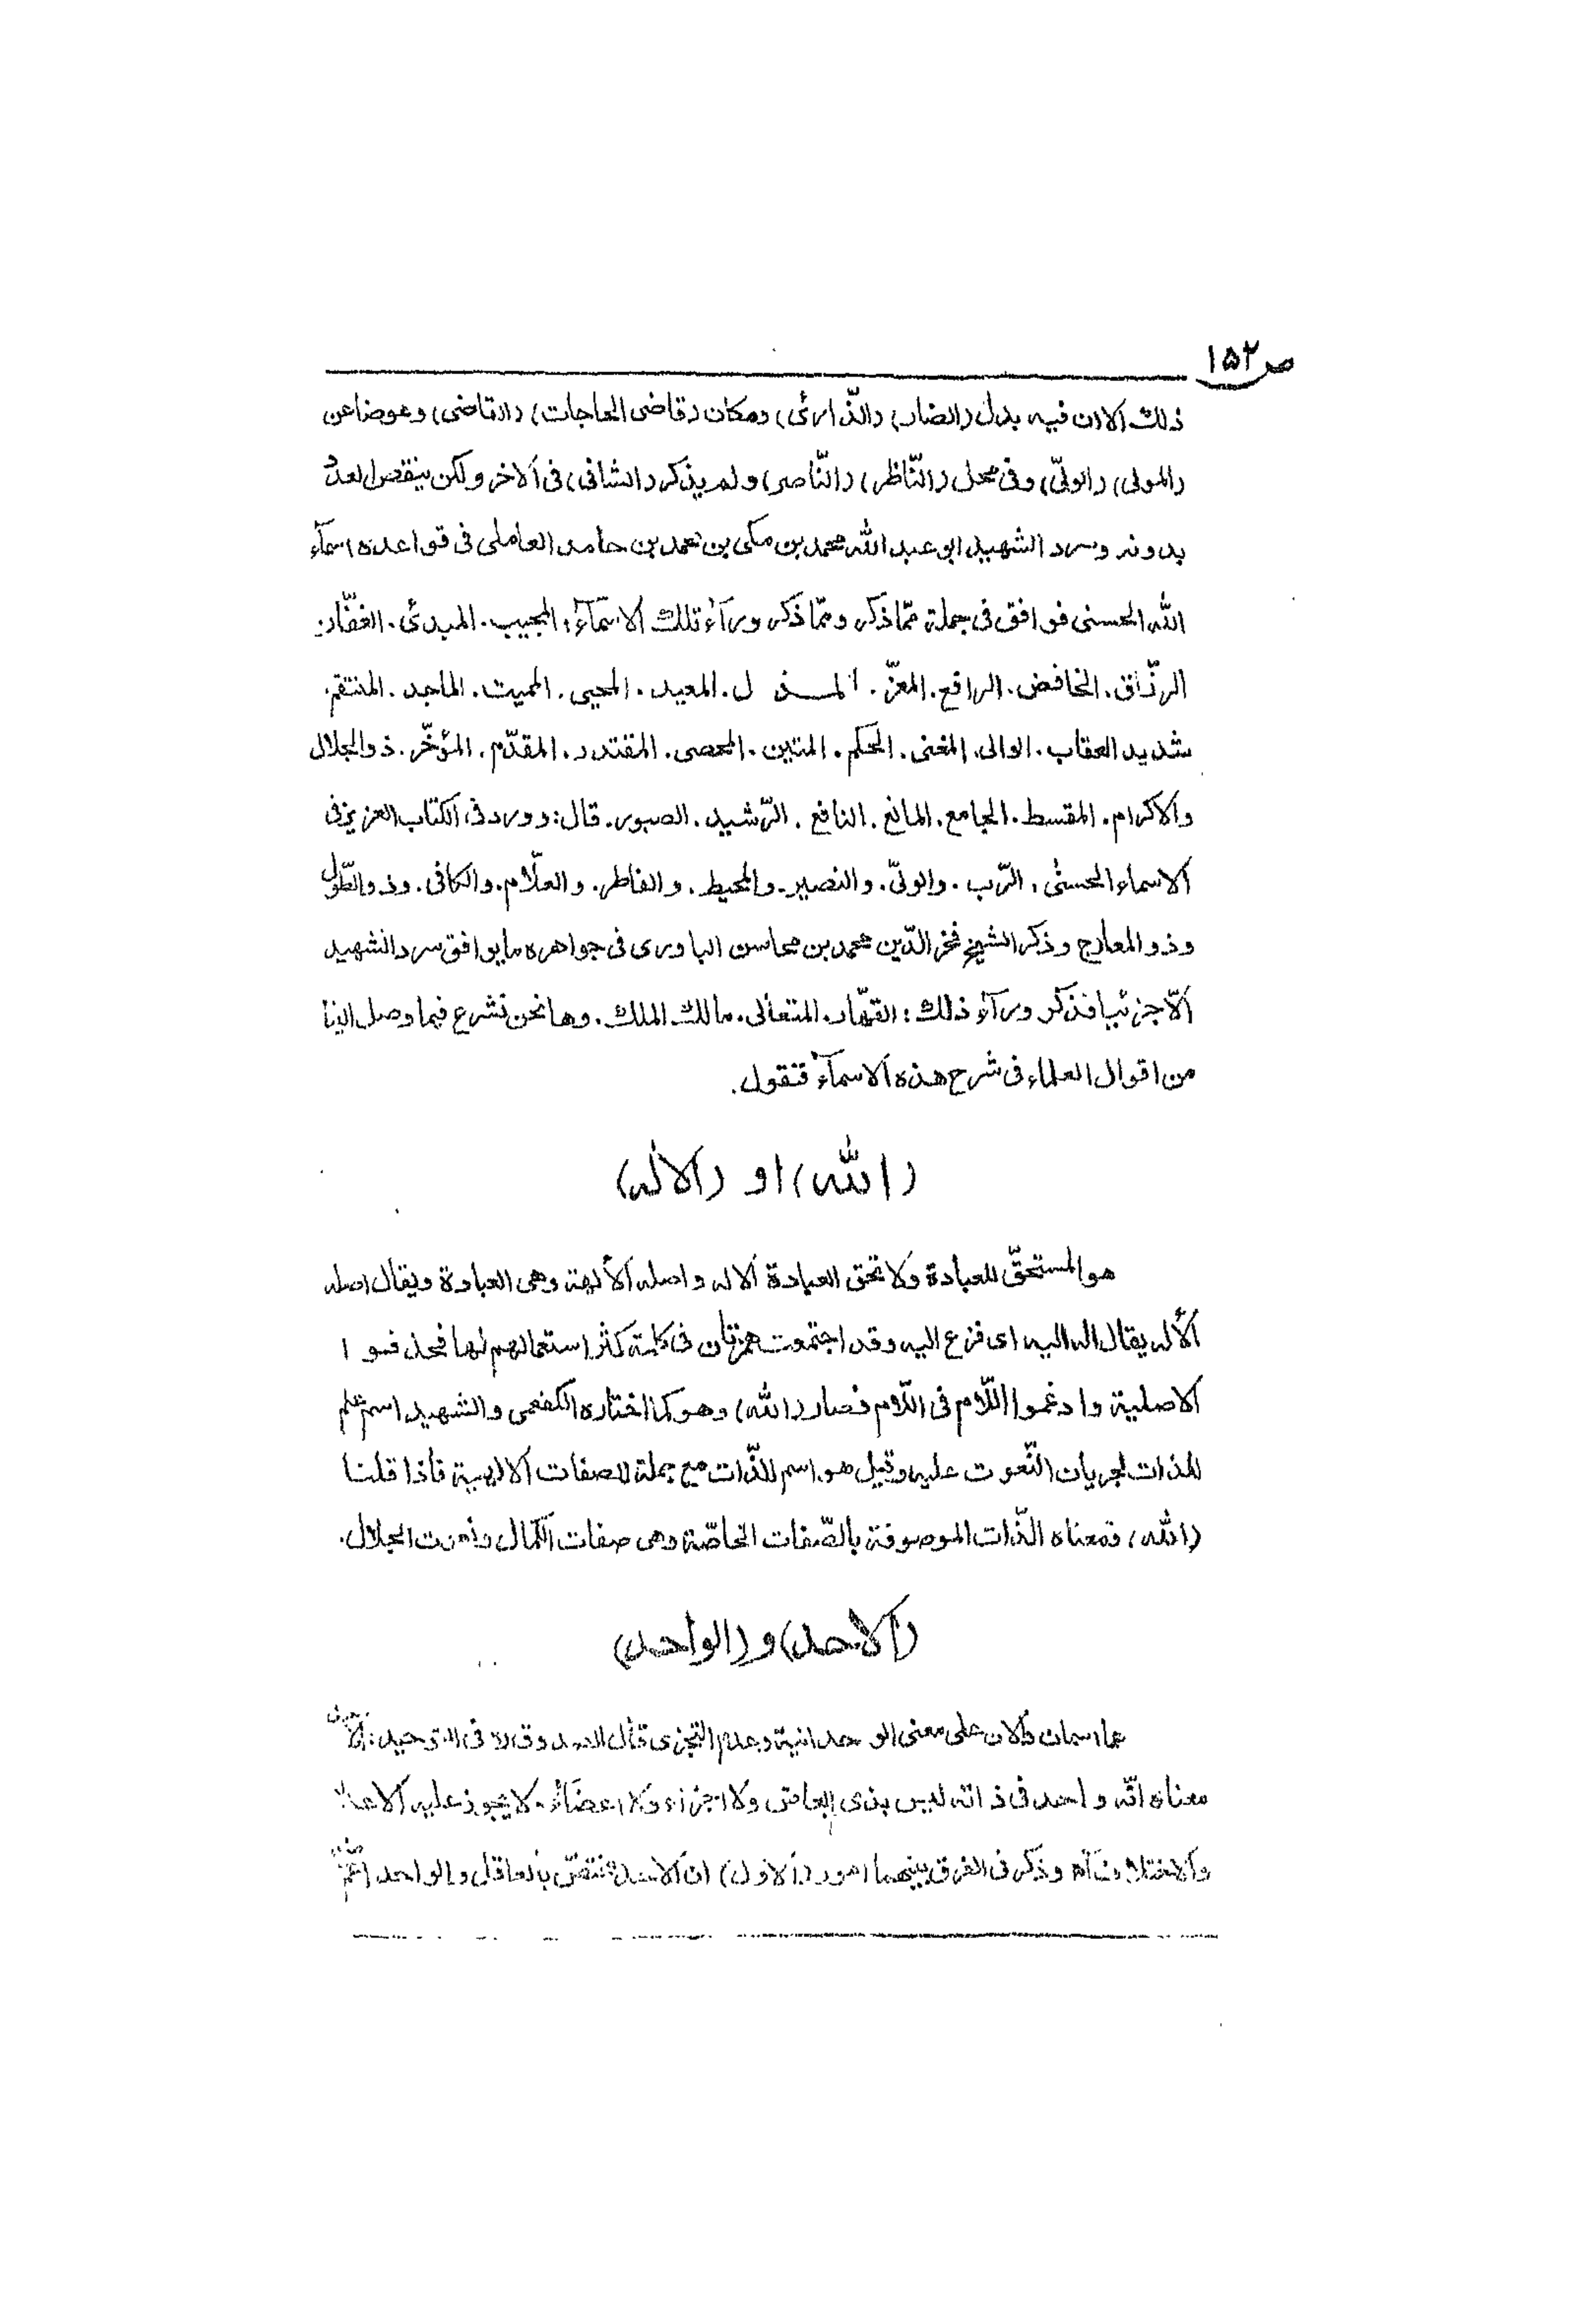 ص ١٥٢
ذلك الا ان فيه بدل (الضار) (الذّارئ) ومكان (قاضى الحاجات) (القاضى) وعوضا عن
(المولى) (الولىّ) وفى محل (النّاظر) (النّاصر) ولم يذكر (الشافى) فى الاخر ولكن ينقص العدد
بدونه وسرد الشهيد ابو عبد الله محمد بن مكى بن محمد بن حامد العاملى فى قواعده اسمآء
الله الحسنى فوافق فى جملة ممّا ذكر وممّا ذكر ورآء تلك الاسمآء: المجيب. المبدئ. الغفّار.
الرزّاق. الخافض. الرافع. المعزّ. المـذ ل. المعيد. المحيى. المميت. الماجد. المنتقم.
شديد العقاب. الوالى. المغنى. الحكم. المتين. المحصى. المقتدر. المقدّم. المؤخّر. ذو الجلال
والاكرام. المقسط. الجامع. المانع. النافع. الرّشيد. الصبور. قال: وورد فى الكتاب العزيز فى
الاسماء الحسنى، الرّب. والولىّ. والنصير. والمحيط. والفاطر. والعلّام. والكافى. وذو الطّول
وذو المعارج وذكر الشيخ فخر الدّين محمد بن محاسن الباورى فى جواهره ما يوافق سرد الشهيد
الّا جزئيا فذكر ورآء ذلك: القهّار. المتعالى. مالك الملك. وها نحن نشرع فيما وصل الينا
من اقوال العلماء فى شرح هذه الاسمآء فنقول.
(الله) او (الاله)
هو المستحقّ للعبادة ولا تحق العبادة الا له واصله الألهة وهى العبادة ويقال اصله
الأله يقال اله اليه اى فزع اليه وقد اجتمعت همزتان فى كلمة كثر استعمالهم لها فحذفوا
الاصلية وادغموا اللّام فى اللّام فصار (الله) وهو كما اختاره الكفعمى والشهيد اسم علم
للذات لجريان النّعوت عليه وقيل هو اسم للذّات مع جملة الصفات الالهية فأذا قلنا
(الله) فمعناه الذّات الموصوفة بالصّفات الخاصّة وهى صفات الكمال ونعوت الجلال.
(الاحد) و (الواحد)
هما اسمان دالان على معنى الوحدانية وعدم التجزى قال الصدوق ره فى التوحيد: الاحد
معناه انّه واحد فى ذاته ليس بذى ابعاض ولا اجزاء ولا اعضاء. لا يجوز عليه الاعداد
والاختلاف اه وذكر فى الفرق بينهما امور (الاول) ان الاحد يختصّ بالعاقل والواحد اعم